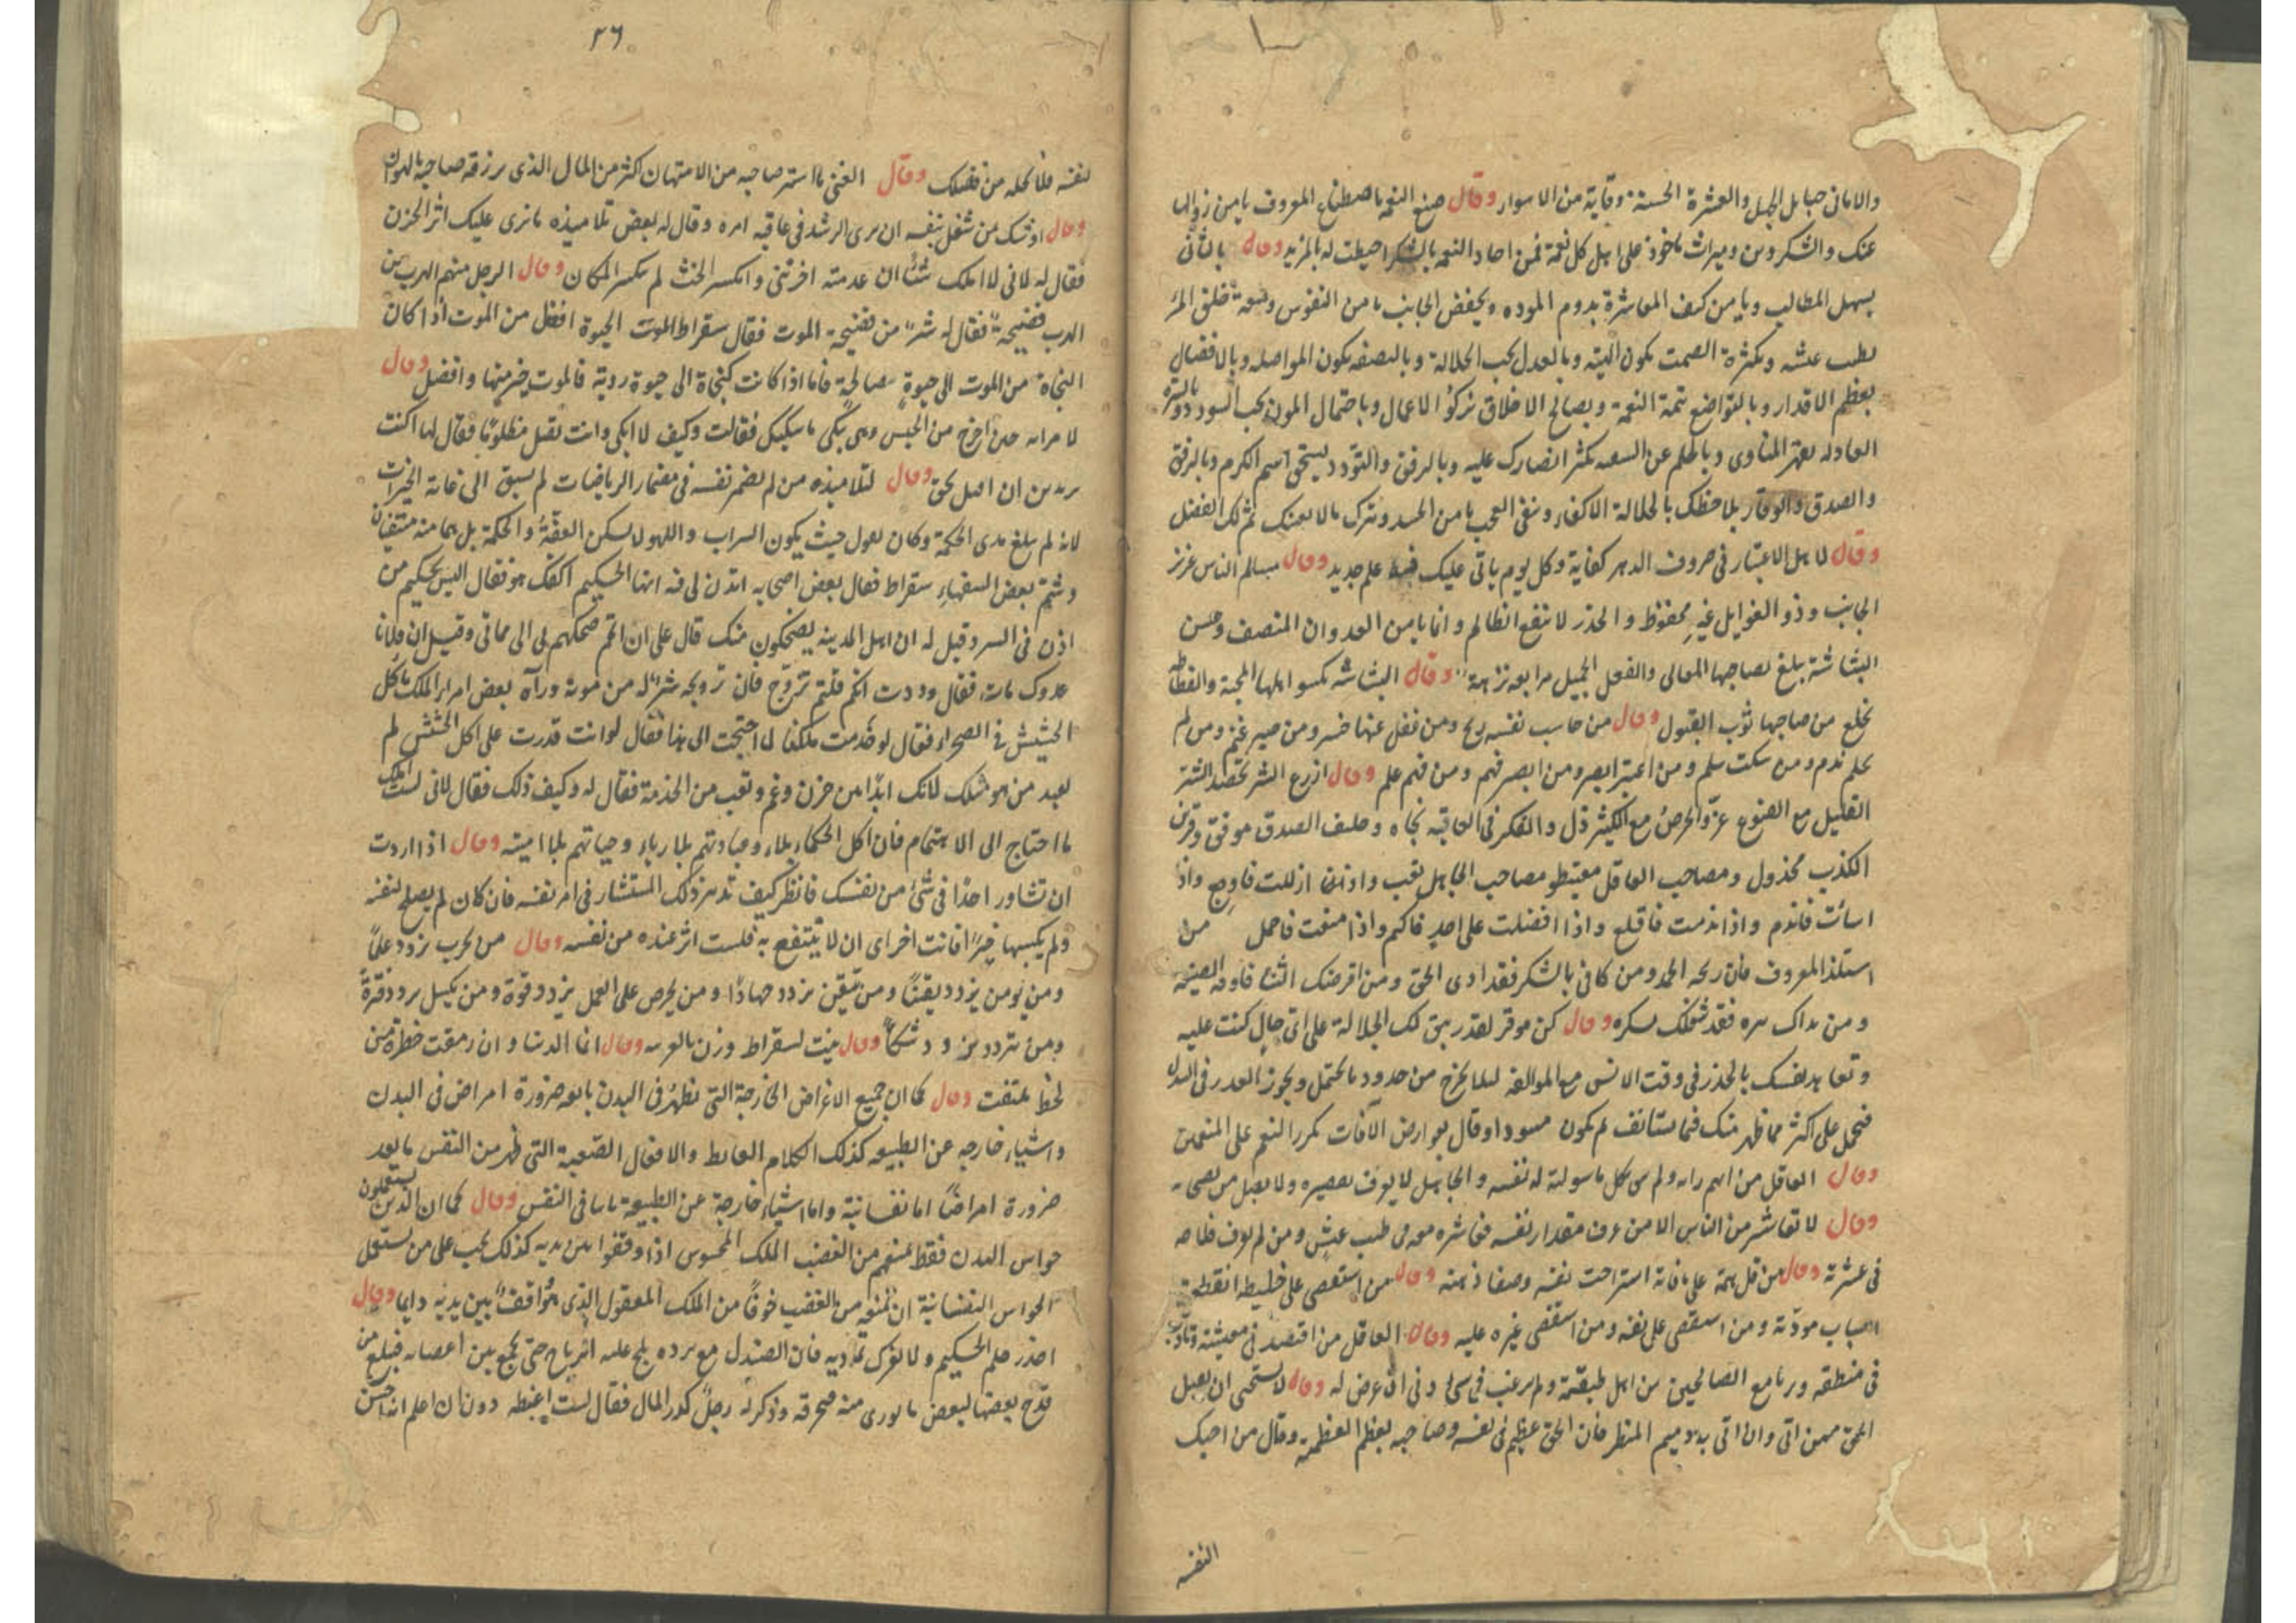 والامانى حبايل الجهل والعشرة الحسنة وقاية من الاسواء وقال صنع النعم باصطناع المعروف يامن زوالها
عنك والشكر دين وميراث ماخوذ على اهل كل نعمة فمن احاد النعم بالشكر احيطت له بالمزيد وقال بالتانى
يسهل المطالب وبلين كنف المعاشرة يدوم المودة وبخفض الجانب يامن النفوس وبسعة خلق المرء
يطيب عيشه وبكثرة الصمت يكون الهيبة وبالعدل يجب الجلالة وبالنصفه يكون المواصله وبالافضال
يعظم الاقدار وبالتواضع تتم النعمة وبصالح الاخلاق تزكو الاعمال وباحتمال المون يجب السودد وبالسيرة
العادله يقهر المناوى وبالحلم عن السفيه تكثر انصارك عليه وبالرفق والتودد يستحق اسم الكرم وبالرفق
والصدق والوقار يلاحظك بالجلالة الاكفاء وبنفى العجب يامن الحسد وبترك مالا يعنيك يتم لك الفضل
وقال لاهل الاعتبار فى صروف الدهر كفاية وكل يوم ياتى عليك فيه علم جديد وقال مسالم الناس عزيز
الجانب وذو الغوايل غير محفوظ والحذر لا ينفع الظالم وانما يامن العدوان المنصف وحسن
البشاشة يبلغ لصاحبها المعالى والفعل الجميل مرابعه نزهة وقال البشاشه تكسوا اهلها المحبة والفظاظه
تخلع من صاحبها ثوب القبول وقال من حاسب نفسه ربح ومن غفل عنها خسر ومن صبر غنم ومن لم
يحلم ندم ومن سكت سلم ومن اعتبر ابصر ومن ابصر فهم ومن فهم علم وقال ازرع الشر تحصد الشر
القليل مع القنوع عز والحرص مع الكثير ذل والفكر فى العاقبة نجاه وحليف الصدق موفق وقرين
الكذب مخذول ومصاحب العاقل مغتبط ومصاحب الجاهل تعب واذا ازللت فارجع واذا
اسات فاندم واذا ندمت فاقلع واذا افضلت على احد فاكتم واذا منعت فاجمل من
استلذ المعروف فان ربحه الحمد ومن كافى بالشكر فقد ادى الحق ومن اقرضك الثناء فاوفه الصنيعة
ومن بداك ببره فقد شغلك بشكره وقال كن موقر لقدر يبق لك الجلالة على اى حال كنت عليه
وتعاهد نفسك بالحذر فى وقت الانس مع الموالفة ليلا يخرج من حدود ما يحتمل ويجوز العذر فى
فيحمل على اكثر مما ظهر منك فيما يستانف لم يكون مسودا وقال بعوارض الآفات تكدر النعم على المنعمين
وقال العاقل من اتهم رايه ولم يثق بكل ما سولته له نفسه والجاهل لا يعرف تقصيره ولا يقبل من
وقال لا تعاشر من الناس الا من عرف مقدار نفسه فعاشره معه فى طيب عيش ومن لم يعرف فلا
فى عشرته وقال من قل همه على مافاته استراحت نفسه وصفا ذهنه وقال من استقصى على خليطه انقطعت
اسباب مودته ومن استقصى على نفسه ومن استقصى غيره عليه وقال العاقل من اقتصد فى معيشته وتادب
فى منطقه ورتع مع الصالحين من اهل طبقته ولم يرغب فى شى دنى ان عرض له وقال لا تستحى ان تقبل
الحق ممن اتى وان اتى به دميم المنظر فان الحق عظيم فى نفسه وصاحبه يعظم العظيمة وقال من احبك
النفسه
٢٦
لنفسه فلا تخله من فضلك وقال الغنى ما استر صاحبه من الامتهان اكثر من المال الذى يرزقه صاحبه بالهوان
وقال اوشك من شغل بنفسه ان يرى الرشد فى عاقبة امره وقال له بعض تلاميذه ما نرى عليك اثر الحزن
فقال له لانى لا املك شئا ان عدمته احزننى وانكسر الحث لم يكسر المكان وقال الرجل منهم الهرب من
الحرب فضيحة فقال له شر من فضيحة الموت فقال سقراط الموت الحيوة افضل من الموت اذا كان
النجاة من الموت الى حيوة صالحة فاما اذا كانت كنجاة الى حيوة ردية فالموت خير منها وافضل وقال
لامراته حين اخرج من الحبس وهى تبكى ما يبكيك فقالت وكيف لا ابكى وانت تقتل مظلوما فقال لها اكنت
تريدين ان اقتل بحق وقال لتلاميذه من لم يضم نفسه فى مضمار الرياضات لم يسبق الى غاية الخيرات
لانه لم يبلغ مدى الحكمة وكان يقول حيث يكون الشراب واللهو لا يسكن العفة والحكمة بل هما منه منتفيان
وشتم بعض السفهاء سقراط فقال بعض اصحابه ائذن لى فيه ايها الحكيم اكفك هو فقال اليس بحكيم من
اذن فى الشر وقيل له ان اهل المدينه يضحكون منك قال على ان اتم ضحكهم بى الى مماتى وقيل ان فلانا
عدوك مات فقال وددت انكم قلتم تزوج فان تزوجه شر له من موته ورآه بعض امراء الملك ياكل
الحشيش فى الصحراء فقال لو خدمت ملكنا لما احتجت الى هذا فقال لو انت قدرت على اكل الحشيش لم
تعبد من هو مثلك لانك ابدا من حزن وغم وتعب من الخدمة فقال له وكيف ذلك فقال لانى لست املك
ما احتاج الى الاهتمام فان اكل الحكماء بلاء وعبادتهم بلا رياء وحياتهم بلا اميته وقال اذا اردت
ان تشاور احدا فى شئ من نفسك فانظر كيف تدبير ذلك المستشار فى امر نفسه فان كان لم يصلح لنفسه
ولم يكسبها خيرا فانت احرى ان لا ينتفع به فلست اثر عنده من نفسه وقال من جرب يزدد علما
ومن يومن يزدد يقينا ومن تيقن يزدد جهادا ومن يحرص على العمل يزدد قوة ومن يكسل يزدد فترة
ومن يتردد يزدد شكا وقال بيت لسقراط وزن بالعربيه وقال انما الدنيا وان رمقت خطرة من
لحظ ملتفت وقال كما ان جميع الاعراض الخارجة التى تظهر فى البدن تابعة ضرورة امراض فى البدن
واشياء خارجه عن الطبيعه كذلك الكلام الغليظ والافعال الصعبة التى تظهر من النفس تابعه
ضرورة امراضا اما نفسانية واما اشياء خارجة عن الطبيعة ثابتا فى النفس وقال كما ان الذين يستعملون
حواس البدن فقط تمنعهم من الغضب الملك المحسوس اذا وقفوا بين يديه كذلك يجب على من يستعمل
الحواس النفسانية ان تمنعه من الغضب خوفا من الملك المعقول الذى هو واقف بين يديه دايما وقال
احذر حلم الحكيم ولا يغرك تماديه فان الصندل مع برده يلج عليه الرياح حتى تجمع بين اعصانه فبلغ من
قدح بعضها لبعض ما يورى منه فتحرقه وذكر له رجل كدر المال فقال لست اغبطه دون ان اعلم انه احسن